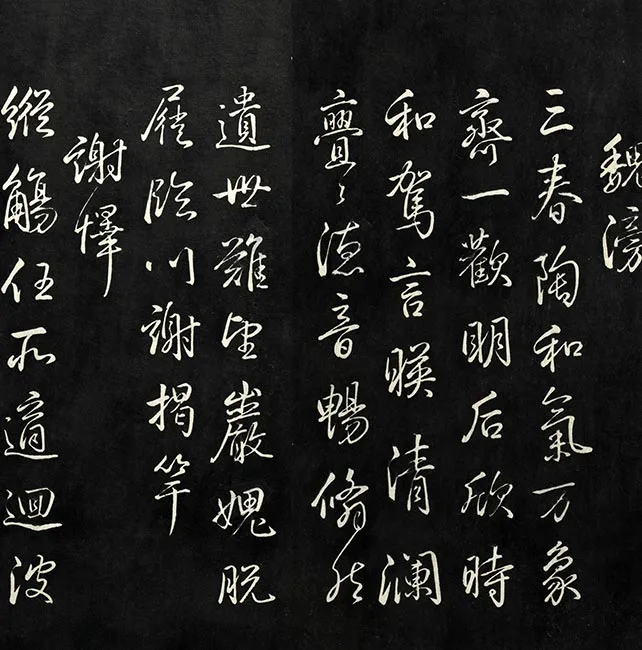 魏滂
三春陶和氣万象
齊一歡明后欣時
和駕言暎清瀾
亹〻德音暢翛然
遺世難望巖愧脫
屣臨川謝揭竿
謝懌
縱觴任所適迴波